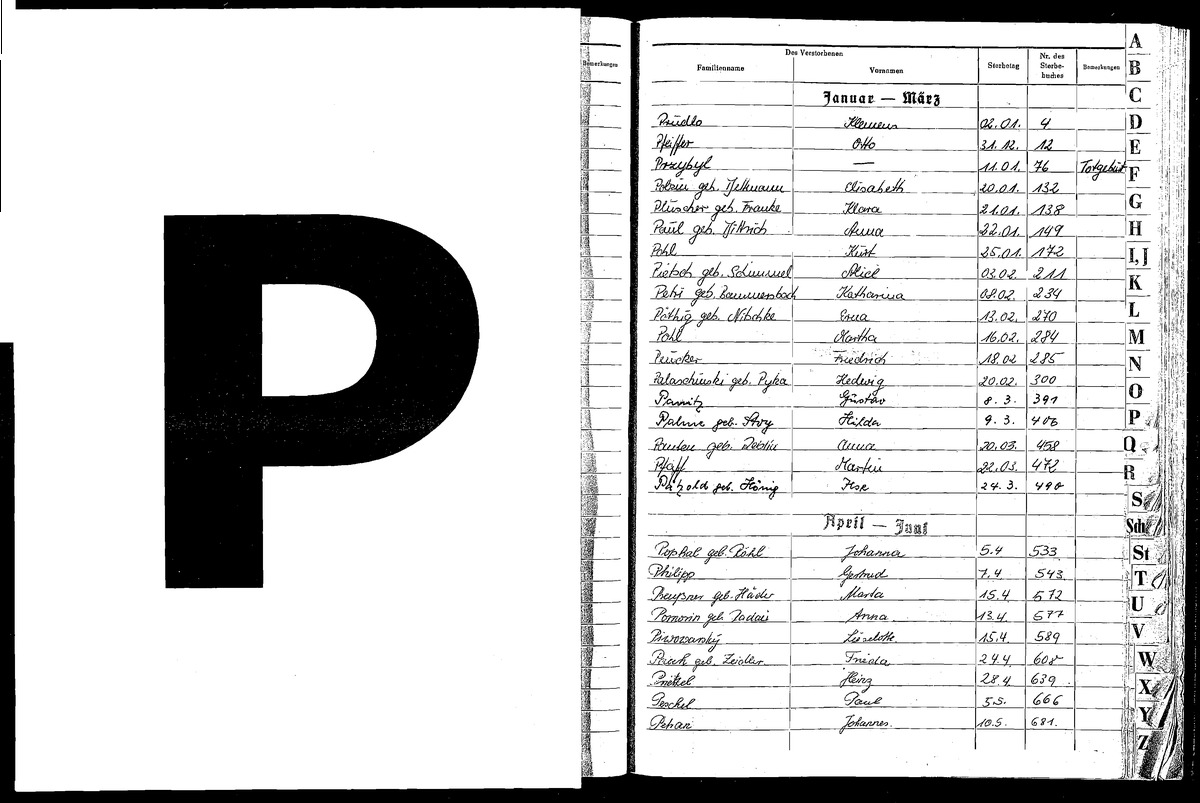 P
Bemerkungen
Des Verstorbenen
Familienname Vornamen Sterbetag Nr. des Sterbe-buches Bemerkungen
Januar — März
Prudlo Klemens 02.01. 4
Pfeiffer Otto 31.12. 12
Przybyl — 11.01. 76 Totgeburt
Polzin geb. Elisabeth 20.01. 132
Pluscher geb. Franke Klara 21.01. 138
Paul geb. Dittrich Anna 22.01. 149
Pohl Kurt 25.01. 172
Pietsch geb. Schimmel 03.02. 211
Petri geb. Bammersbach Katharina 08.02. 234
Pöthig geb. Nitschke Erna 13.02. 270
Pohl Martha 16.02. 284
Peucker Friedrich 18.02 285
Palaschinski geb. Pyka Hedwig 20.02. 300
Pannitz Gustav 8. 3. 391
Palme geb. Hilda 9. 3. 406
geb. Anna 20.03. 458
Pfaff Martin 22.03. 472
Pätzold geb. Hönig Ilse 24. 3. 490
April — Juni
Pophal geb. Pöhl Johanna 5.4 533
Philipp Gertrud 7.4. 543
geb. Häder Marta 15.4 572
Pomorin geb. Anna 13.4. 577
Liselotte 15.4. 589
geb. Zeidler Frieda 24.4. 608
Heinz 28.4 639
Peschel Paul 5.5. 666
Pehan Johannes 10.5. 681.
A
B
C
D
E
F
G
H
I, J
K
L
M
N
O
P
Q
R
S
Sch
St
T
U
V
W
X
Y
Z